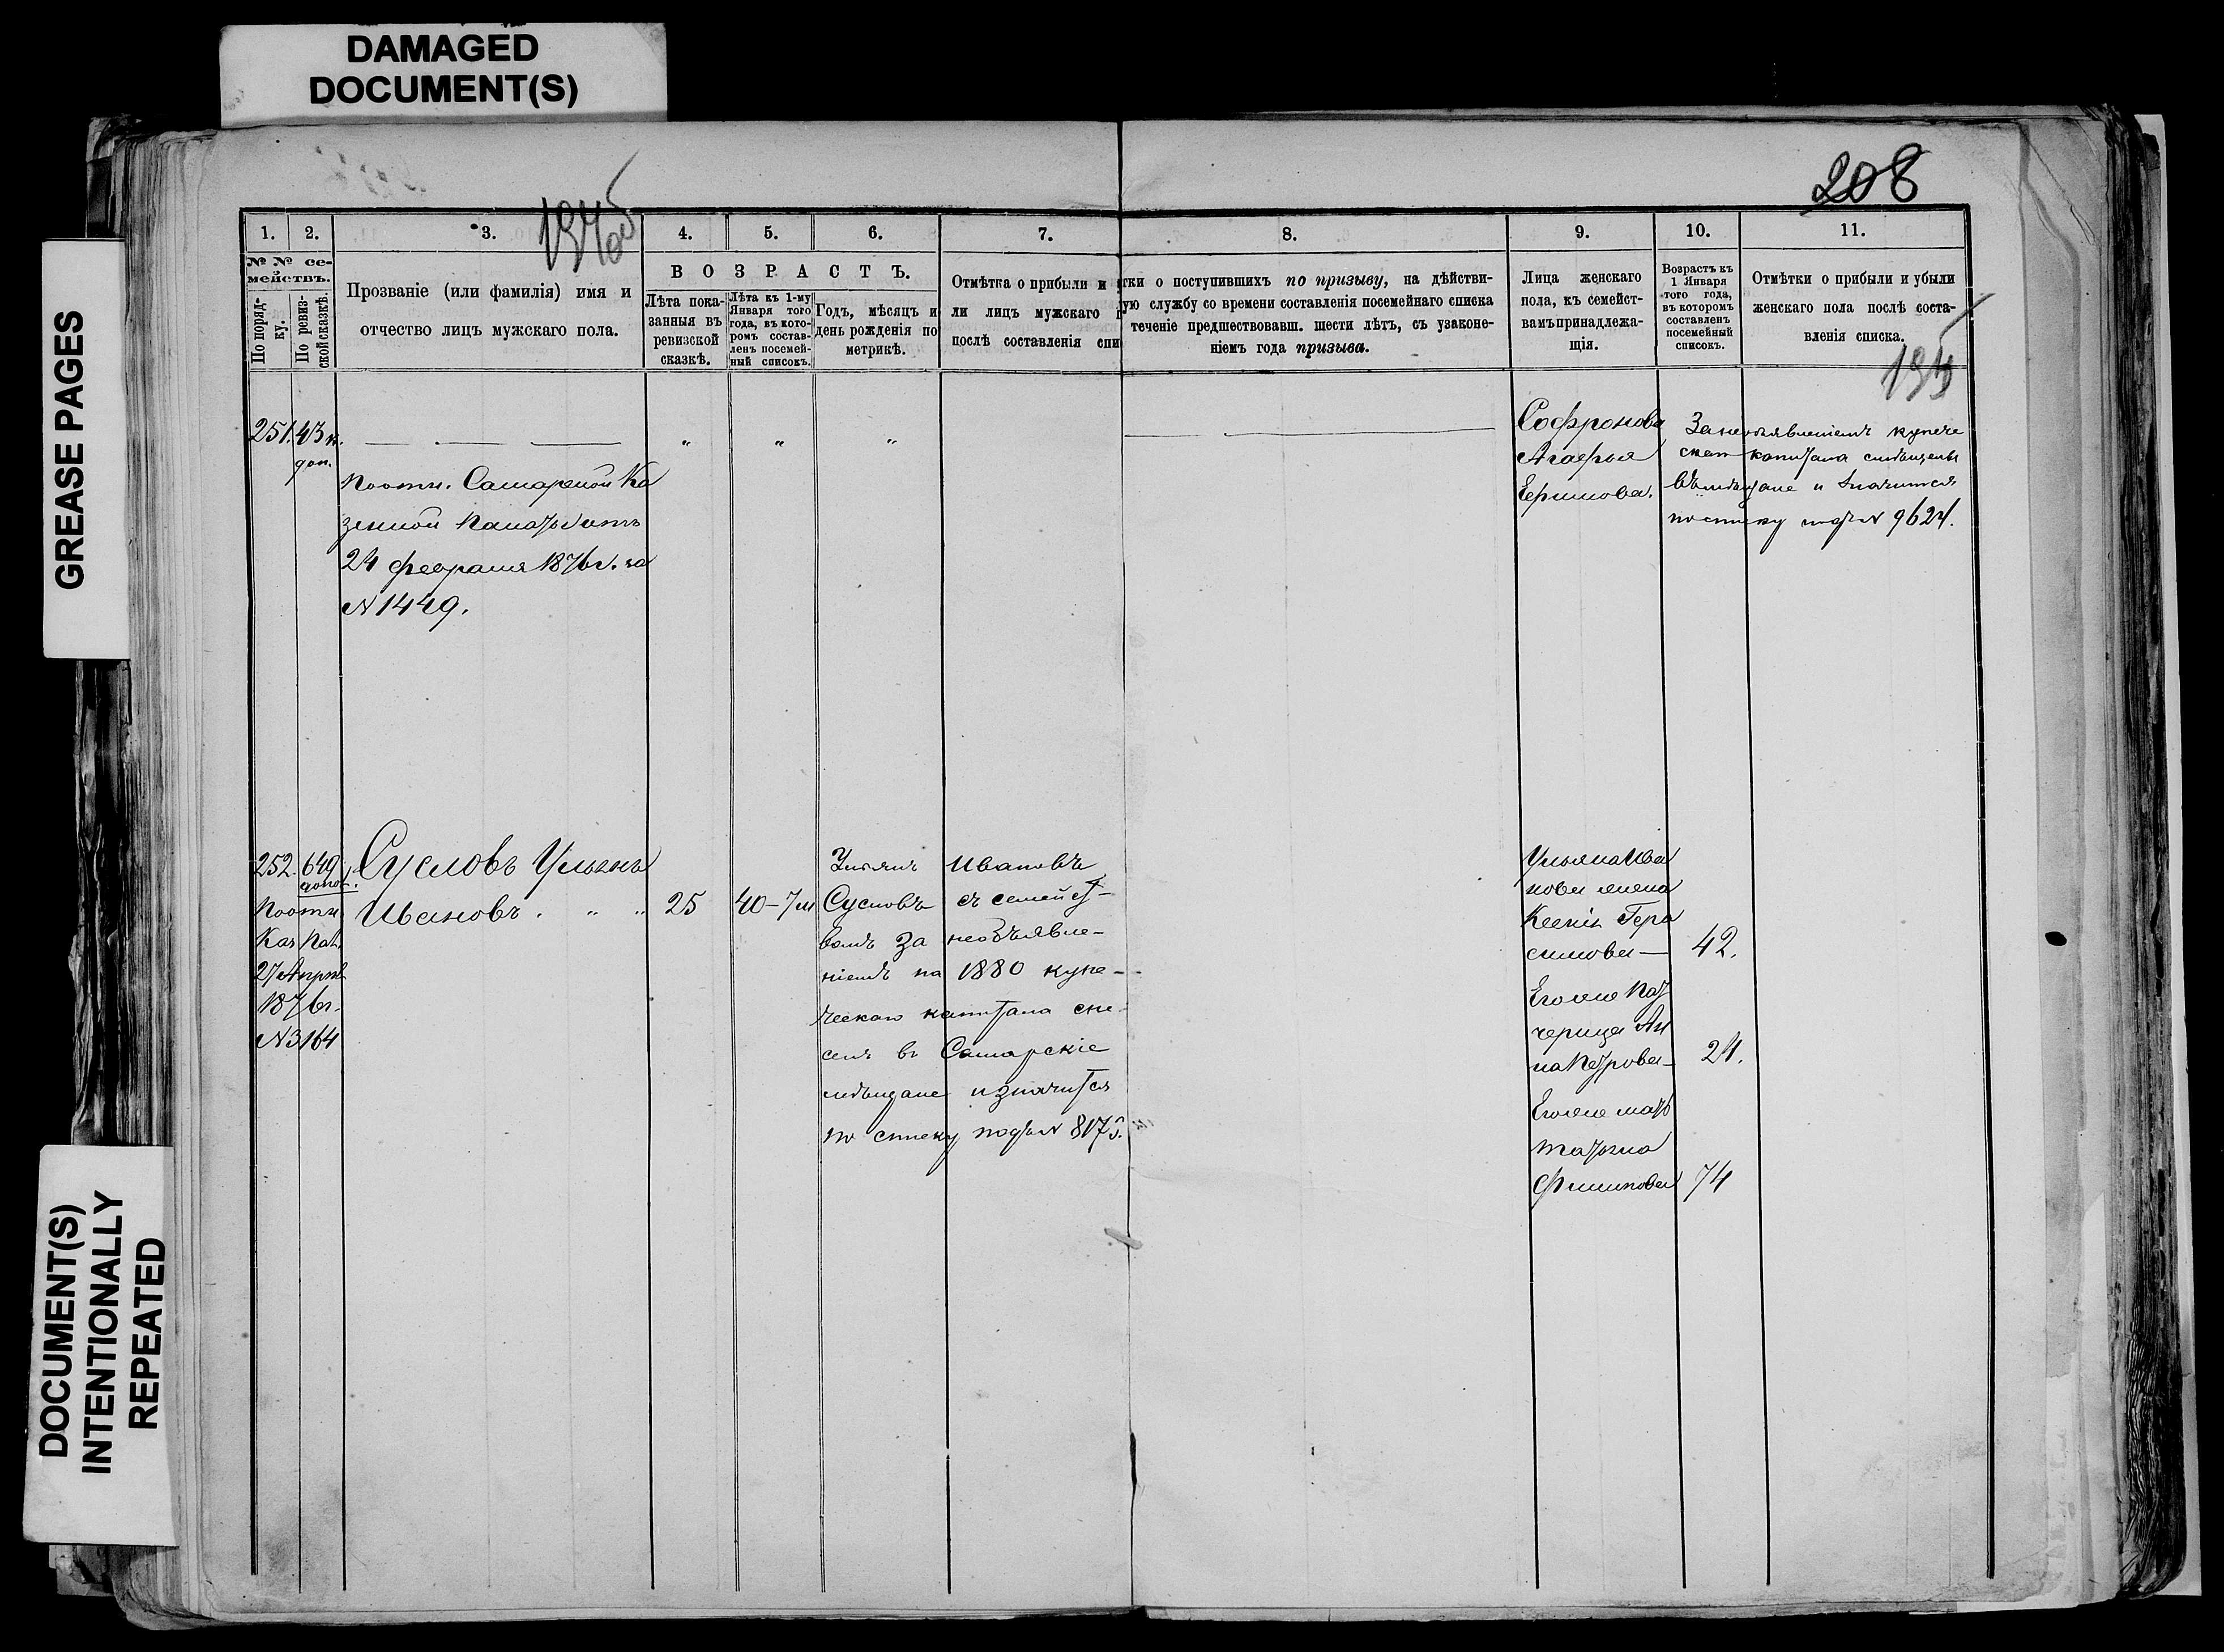 DAMAGED
DOCUMENT(S)
GREASE PAGES
DOCUMENT(S)
INTENTIONALLY
REPEATED
208
195
1. 2. 3. 4. 5. 6. 7. 8. 9. 10. 11.
№ № се-
мействъ.
По поряд-
ку.
По ревиз-
ской сказкѣ.
Прозваніе (или фамилія) имя и
отчество лицъ мужскаго пола.
ВОЗРАСТЪ.
Лѣта пока-
занныя въ
ревизской
сказкѣ.
Лѣта къ 1-му
Января того
года, въ кото-
ромъ состав-
ленъ посемей-
ный списокъ.
Годъ, мѣсяцъ и
день рожденія по
метрикѣ.
Отмѣтка о прибыли и
ли лицъ мужскаго
послѣ составленія спи
тки о поступившихъ по призыву, на дѣйстви-
ую службу со времени составленія посемейнаго списка
теченіе предшествовавш. шести лѣтъ, съ узаконе-
ніемъ года призыва.
Лица женскаго
пола, къ семейст-
вамъ принадлежа-
щія.
Возрастъ къ
1 Января
того года,
въ которомъ
составленъ
посемейный
списокъ.
Отмѣтки о прибыли и убыли
женскаго пола послѣ соста-
вленія списка.
251. 43 к.
доп.
Поотн. Самарской Ка
зенной Палаты отъ
24 февраля 1876 г. за
№ 1449.
Софронова
Агафья
Ефимова.
За необъявленіемъ купече
скаго капитала
въ мѣщане и значится
по списку подъ № 9624.
252. 649
допол.
Поотн.
Каз Пал.
27 Апрѣл
1876 г.
№ 3164
Сусловъ Ульянъ
Ивановъ . " " 25 40–7 м
Ульянъ Ивановъ
Сусловъ съ семейст-
вомъ за необъявле-
ніемъ на 1880 купе-
ческаго капитала
въ Самарскіе
мѣщане и значится
по списку подъ № 8173.
Ульяна Ива
нова жена
Ксенія Гера
симова — 42.
Его же пад
черица Ан
на Петрова — 24.
Его же мать
Татьяна
Филипова 74